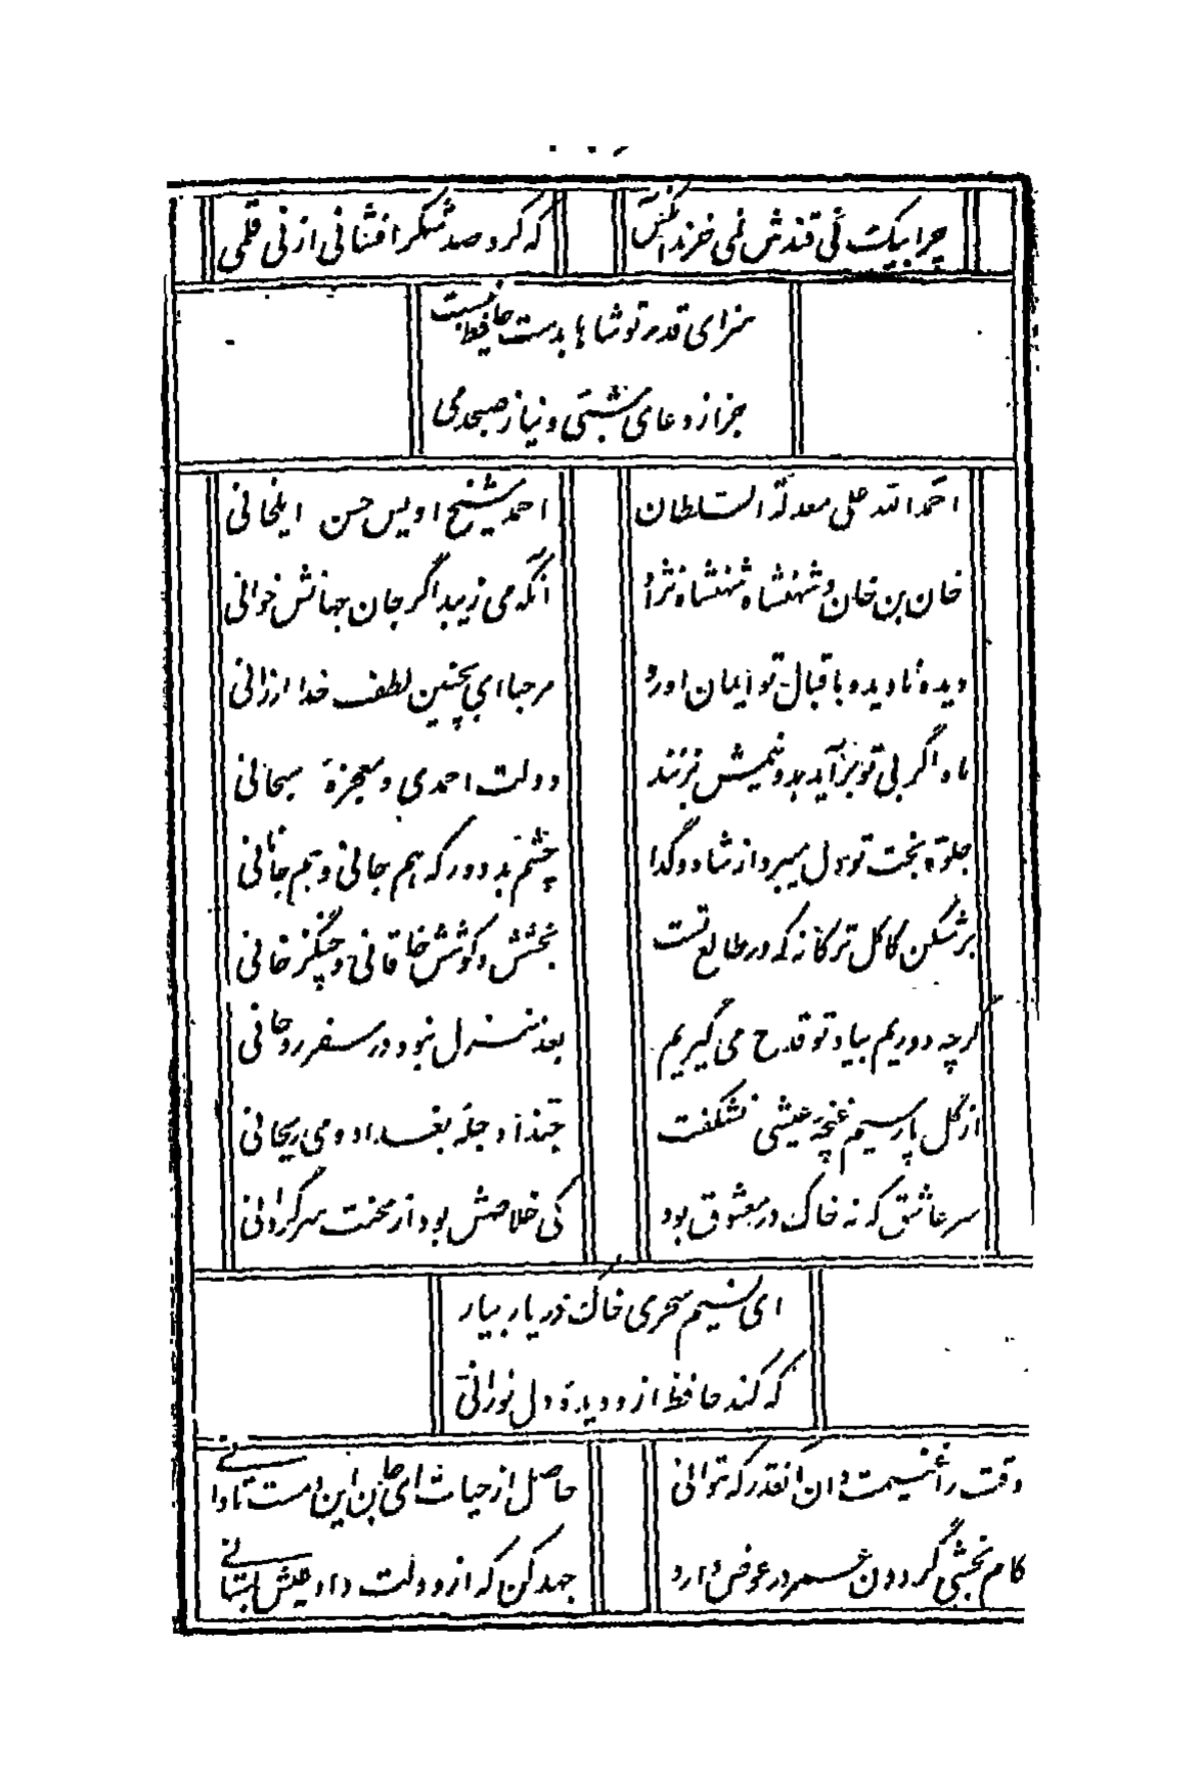 چرا بیکت نی قندش نمی خرند آنکس
که کرد صد شکر افشانی از نی قلمی
سزای قدر تو شاها بدست حافظ نیست
جز از دعای شبی و نیاز صبحدمی
احمد الله علی معدلة السلطان
احمد شیخ اویس حسن ایلخانی
خان بن خان و شهنشاه شهنشاه نژاد
آنکه می زیبد اگر جان جهانش خوانی
دیده نادیده باقبال تو ایمان آورد
مرحبا ای بچنین لطف خدا ارزانی
ماه اگر بی تو برآید بدو نیمش بزنند
دولت احمدی و معجزهٔ سبحانی
جلوهٔ بخت تو دل میبرد از شاه و گدا
چشم بد دور که هم جانی و هم جانانی
برشکن کاکل ترکانه که در طالع تست
بخشش و کوشش خاقانی و چنگیز خانی
گرچه دوریم بیاد تو قدح می گیریم
بعد منزل نبود در سفر روحانی
از گل پارسیم غنچهٔ عیشی نشکفت
حبذا دجلهٔ بغداد و می ریحانی
سر عاشق که نه خاک در معشوق بود
کی خلاصش بود از محنت سرگردانی
ای نسیم سحری خاک در یار بیار
که کند حافظ از و دیدهٔ دل نورانی
وقت را غنیمت دان آنقدر که توانی
حاصل از حیات ای جان این دمست تا دانی
کام بخشی گردون عمر در عوض دارد
جهد کن که از دولت داد عیش بستانی